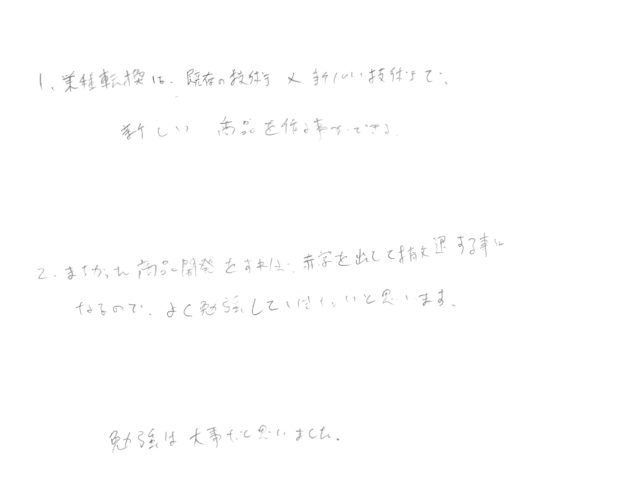 1、業種転換は、既存の技術 × 新しい技術で、
新しい 商品を作る事ができる。
2. まちがった商品開発をすれば、赤字を出して撤退する事に
なるので、よく勉強していきたいと思います。
勉強は大事だと思いました。